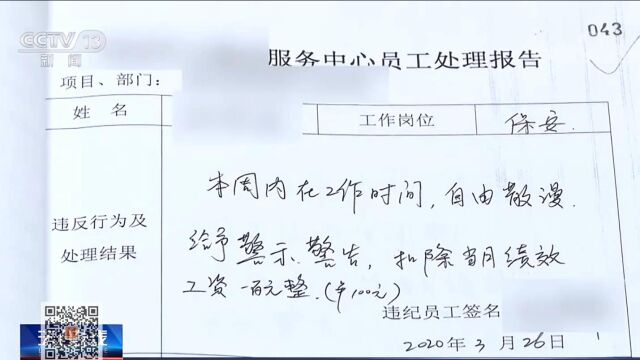 CCTV 13
新闻
043
服务中心员工处理报告
项目、部门:
姓 名
工作岗位
保安.
违反行为及
处理结果
本周内在工作时间,自由散漫.
给予警示、警告,扣除当月绩效
工资一百元整.(¥100元)
违纪员工签名
2020年3月26日